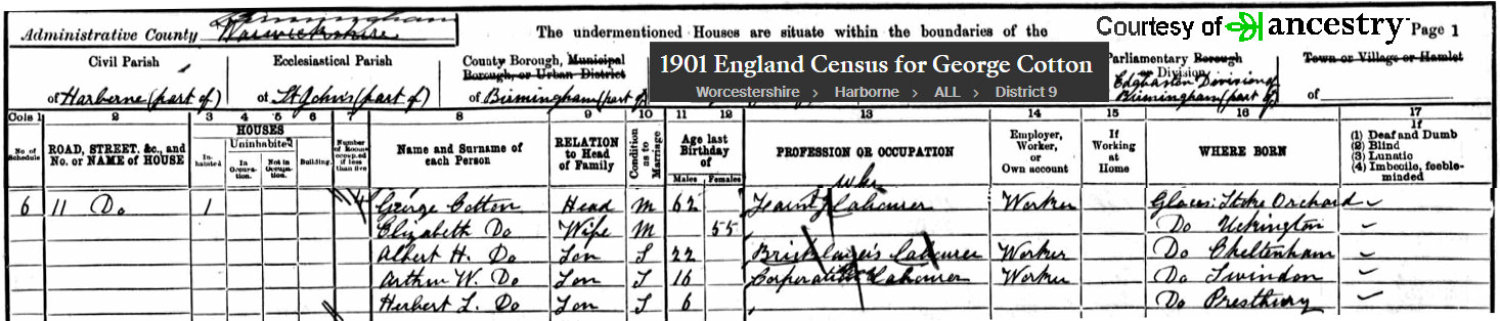 Birmingham
Administrative County Warwickshire
The undermentioned Houses are situate within the boundaries of the
Courtesy of ancestry
Page 1
1901 England Census for George Cotton
Worcestershire > Harborne > ALL > District 9
Civil Parish
of Harborne (part of)
Ecclesiastical Parish
of St John's (part of)
County Borough, Municipal
Borough, or Urban District
of Birmingham (part of)
Parliamentary Borough
or Division
Edgbaston Division of
Birmingham (part of)
Town or Village or Hamlet
of
Cols 1 2 3 4 5 6 7 8 9 10 11 12 13 14 15 16 17
No. of Schedule
ROAD, STREET, &c., and No. or NAME of HOUSE
HOUSES
In-habited
Uninhabited
In Occupa-tion.
Not in Occupa-tion.
Building.
Number of Rooms occupied if less than five
Name and Surname of each Person
RELATION to Head of Family
Condition as to Marriage
Age last Birthday of
Males Females
PROFESSION OR OCCUPATION
Employer, Worker, or Own account
If Working at Home
WHERE BORN
If
(1) Deaf and Dumb
(2) Blind
(3) Lunatic
(4) Imbecile, feeble-minded
6 11 Do 1 4 George Cotton Head M 62 Labourer Worker Glocs: Stoke Orchard
Elizabeth Do Wife M 55 Do Uckington
Albert H. Do Son S 22 Bricklayer's Labourer Worker Do Cheltenham
Arthur W. Do Son S 16 Corporation Labourer Worker Do Swindon
Herbert L. Do Son S 6 Do Prestbury